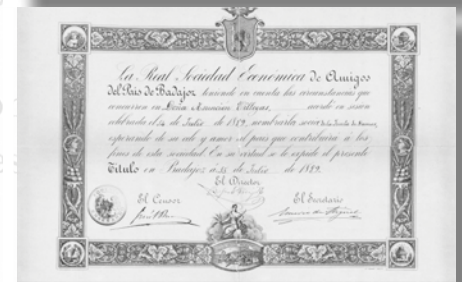 La Real Sociedad Económica de Amigos
del País de Badajoz teniendo en cuenta las circunstancias que
concurren en Doña Asunción Villegas, acordó en sesión
celebrada el 14 de Julio de 1889 nombrarla socia de la Junta de Damas,
esperando de su celo y amor al país que contribuirá á los
fines de esta sociedad. En su virtud se le expide el presente
Título en Badajoz á 14 de Julio de 1889.
El Director
El Censor
El Secretario